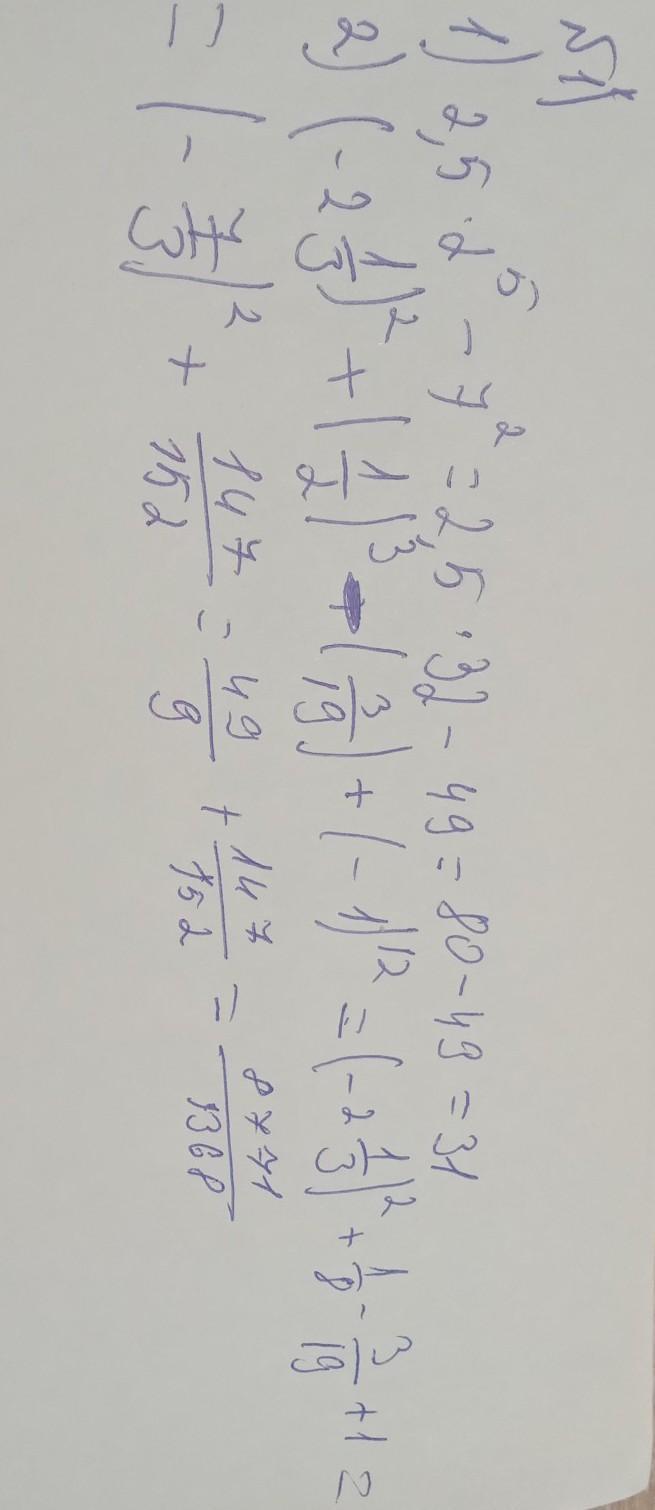 №1)
1) 2,5 · 2^5 - 7^2 = 2,5 · 32 - 49 = 80 - 49 = 31
2) (-2 1/3)^2 + (1/2)^3 - (3/19) + (-1)^12 = (-2 1/3)^2 + 1/8 - 3/19 + 1 =
= (-7/3)^2 + 147/152 = 49/9 + 147/152 = 8771/1368